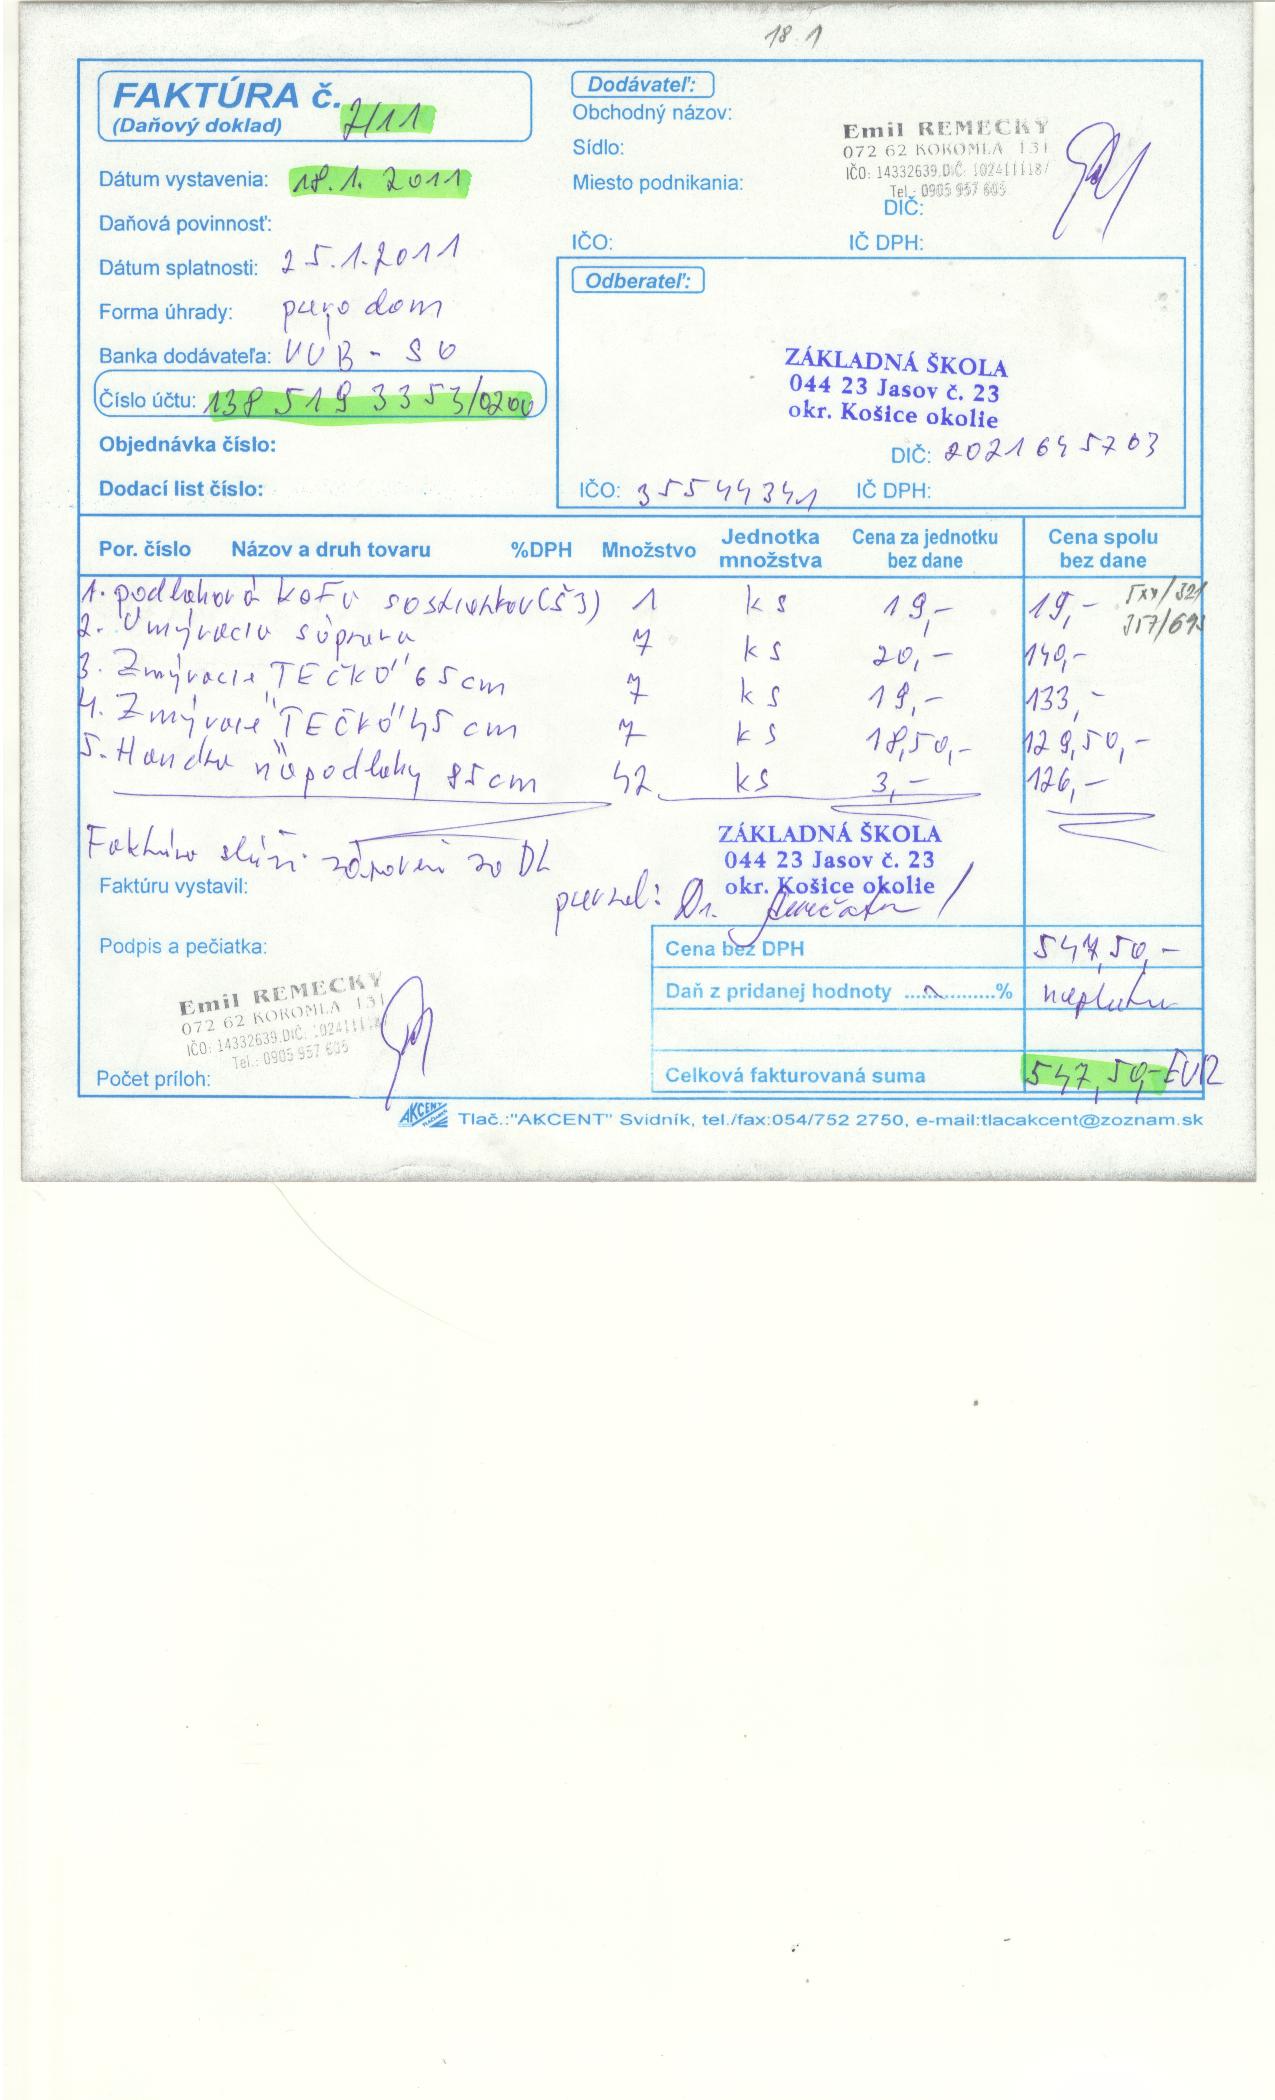 18.1
FAKTÚRA č. 7/11
(Daňový doklad)
Dátum vystavenia: 18.1.2011
Daňová povinnosť:
Dátum splatnosti: 25.1.2011
Forma úhrady:
Banka dodávateľa: VÚB -
Číslo účtu: 138 519 3353/0200
Objednávka číslo:
Dodací list číslo:
Dodávateľ:
Obchodný názov:
Sídlo:
Miesto podnikania:
Emil REMECKÝ
072 62 KOROMĽA 131
IČO: 14332639, DIČ: 1024111187
Tel.: 0905 957 605
DIČ:
IČO: IČ DPH:
Odberateľ:
ZÁKLADNÁ ŠKOLA
044 23 Jasov č. 23
okr. Košice okolie
DIČ: 2021645703
IČO: 35544341 IČ DPH:
Por. číslo Názov a druh tovaru %DPH Množstvo Jednotka množstva Cena za jednotku bez dane Cena spolu bez dane
1. podlahová kefa 1 ks 19,- 19,-
2. Umývacia súprava 7 ks 20,- 140,-
3. Zmývacie "TEČKO" 65 cm 7 ks 19,- 133,-
4. Zmývacie "TEČKO" 45 cm 7 ks 18,50,- 129,50,-
5. Handra na podlahy 85cm 42 ks 3,- 126,-
Faktúra slúži zároveň za DL
ZÁKLADNÁ ŠKOLA
044 23 Jasov č. 23
okr. Košice okolie
Faktúru vystavil:
Podpis a pečiatka:
Emil REMECKÝ
072 62 KOROMĽA 131
IČO: 14332639, DIČ: 1024111187
Tel.: 0905 957 605
Počet príloh:
Cena bez DPH 547,50,-
Daň z pridanej hodnoty ..................%
Celková fakturovaná suma 547,50,- EUR
AKCENT Tlač.:"AKCENT" Svidník, tel./fax:054/752 2750, e-mail:tlacakcent@zoznam.sk